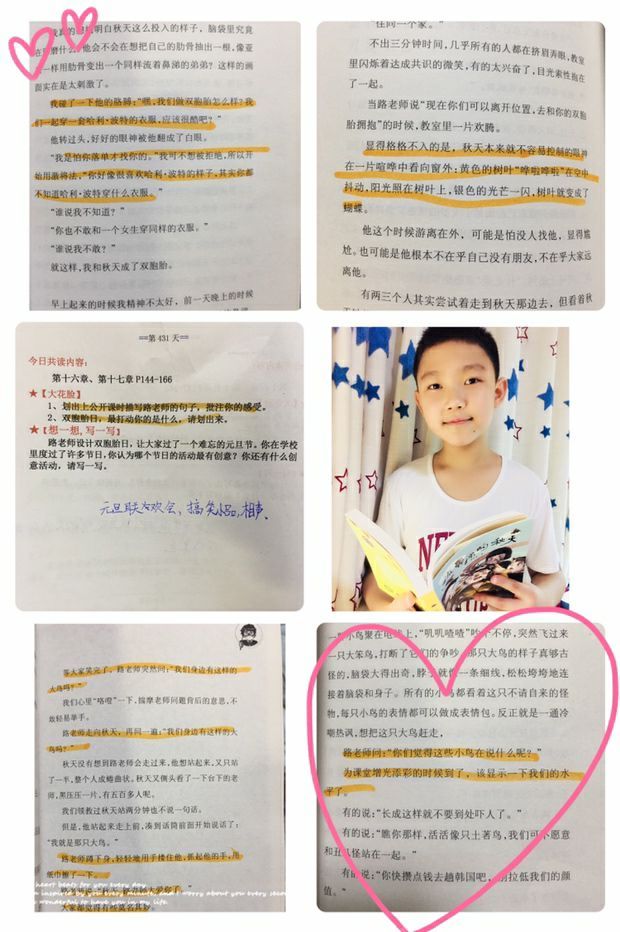 真的想明白秋天这么投入的样子，脑袋里究竟
磨什么。他会不会在想把自己的肋骨抽出一根，像亚
一样用肋骨变出一个同样流着鼻涕的弟弟？这样的画
面实在是太刺激了。
我碰了一下他的胳膊：“嘿，我们做双胞胎怎么样？我
们一起穿一套哈利·波特的衣服，应该很酷吧？”
他转过头，好好的眼神被他翻成了白眼。
“我是怕你落单才找你的。”我可不想被拒绝，所以开
始用激将法，“你好像很喜欢哈利·波特的样子，其实你都
不知道哈利·波特穿什么衣服。”
“谁说我不知道？”
“你也不敢和一个女生穿同样的衣服。”
“谁说我不敢？”
就这样，我和秋天成了双胞胎。
早上起来的时候我精神不太好，前一天晚上的时候
住同一个家。”
不出三分钟时间，几乎所有的人都在挤眉弄眼，教室
里闪烁着达成共识的微笑，有的太兴奋了，目光索性抱在
了一起。
当路老师说“现在你们可以离开位置，去和你的双胞
胎拥抱”的时候，教室里一片欢腾。
显得格格不入的是，秋天本来就不容易控制的眼神
在一片喧哗中看向窗外：黄色的树叶“哗啦哗啦”在空中
抖动，阳光照在树叶上，银色的光芒一闪，树叶就变成了
蝴蝶。
他这个时候游离在外，可能是怕没人找他，显得尴
尬。也可能是他根本不在乎自己没有朋友，不在乎大家远
离他。
有两三个人其实尝试着走到秋天那边去，但看着秋
==第 431 天==
今日共读内容：
第十六章、第十七章 P144-166
★【大花脸】
1、划出上公开课时描写路老师的句子，批注你的感受。
2、双胞胎日，最打动你的是什么，请划出来。
★【想一想，写一写】
路老师设计双胞胎日，让大家过了一个难忘的元旦节。你在学校
里度过了许多节日，你认为哪个节日的活动最有创意？你还有什么创
意活动，请写一写。
元旦联欢会、搞笑小品，相声、
NE
的秋天
等大家笑完了，路老师突然问：“我们身边有这样的
大鸟吗？”
我们心里“咯噔”一下，揣摩老师问题背后的意思，不
敢轻易举手。
路老师走向秋天，再问一遍：“我们身边有这样的大
鸟吗？”
秋天没有想到路老师会走过来，他想站起来，又只站
了一半，整个人成蜷曲状。秋天又侧头看了一下台下的老
师，黑压压一片，有五百多人呢。
我们领教过秋天站两分钟也不说一句话。
但是，他站起来走上前，凑到话筒前面开始说话了：
“我就是那只大鸟。”
路老师蹲下身，轻轻地用手搂住他，抓起他的手，用
纸巾擦了一下。
heart beats for you every day.
inspired by you every minute, and I worry about you every second
wonderful to have you in my life.
大家都觉得有些莫名其妙。
小鸟聚在电线上，“叽叽喳喳”吵个不停，突然飞过来
一只大笨鸟，打断了它们的争吵。那只大鸟的样子真够古
怪的，脑袋大得出奇，脖子就像一条细线，松松垮垮地连
接着脑袋和身子。所有的小鸟都看着这只不请自来的怪
物，每只小鸟的表情都可以做成表情包。反正就是一通冷
嘲热讽，想把这只大鸟赶走，
路老师问：“你们觉得这些小鸟在说什么呢？”
为课堂增光添彩的时候到了，该显示一下我们的水
平了。
有的说：“长成这样就不要到处吓人了。”
有的说：“瞧你那样，活活像只土著鸟，我们可不愿意
和丑八怪站在一起。”
有的说：“你快攒点钱去趟韩国吧，别拉低我们的颜
值。”